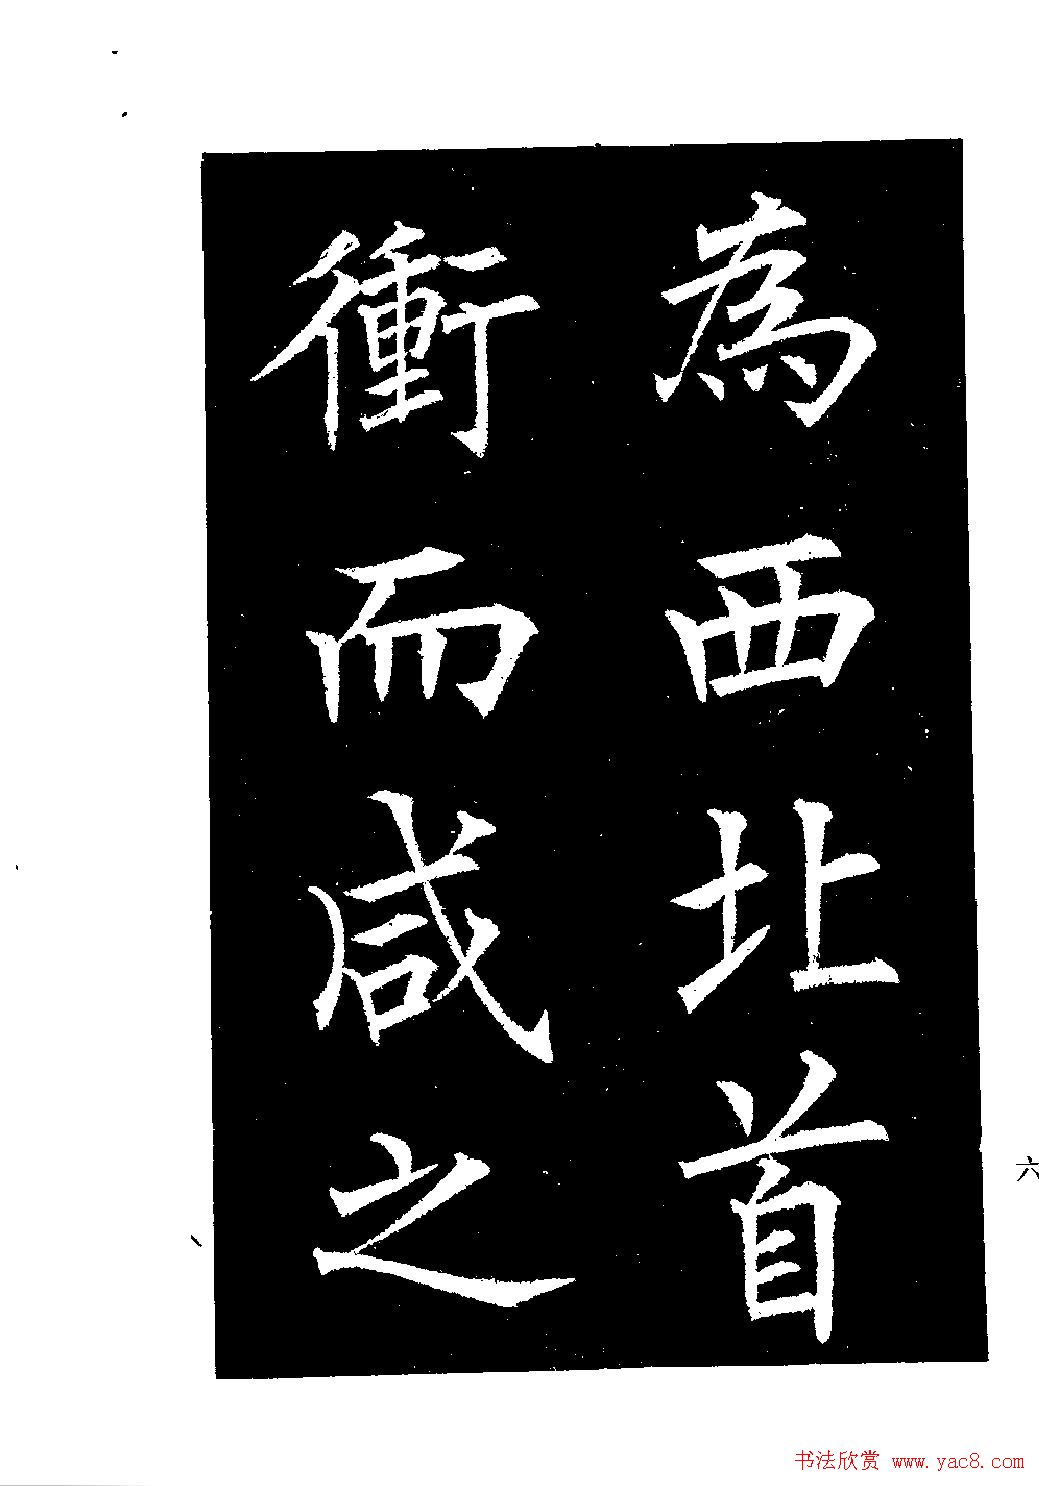 為西北首
衝而咸之
六
书法欣赏 www.yac8.com